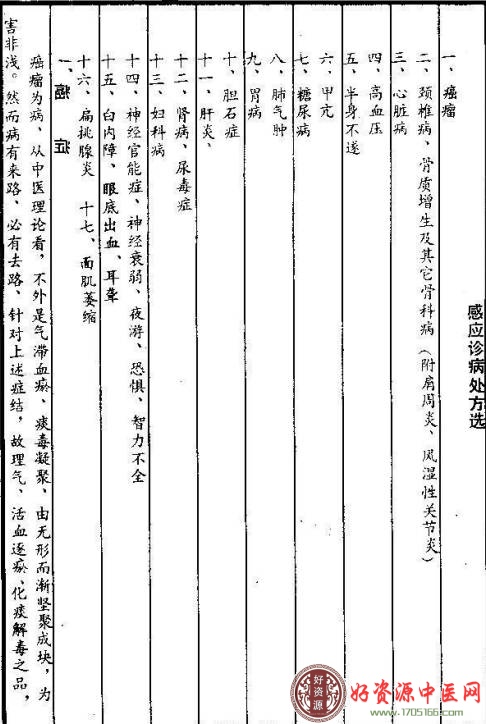 感应诊病处方选
一、癌瘤
二、颈椎病、骨质增生及其它骨科病（附肩周炎、风湿性关节炎）
三、心脏病
四、高血压
五、半身不遂
六、甲亢
七、糖尿病
八、肺气肿
九、胃病
十、胆石症
十一、肝炎、
十二、肾病、尿毒症
十三、妇科病
十四、神经官能症、神经衰弱、夜游、恐惧、智力不全
十五、白内障、眼底出血、耳聋
十六、扁挑腺炎 十七、面肌萎缩
一、癌症
癌瘤为病，从中医理论看，不外是气滞血瘀、痰毒凝聚、由无形而渐坚聚成块，为
害非浅。然而病有来路、必有去路、针对上述症结，故理气、活血逐瘀、化痰解毒之品，
好资源
好资源中医网
www.1705166.com